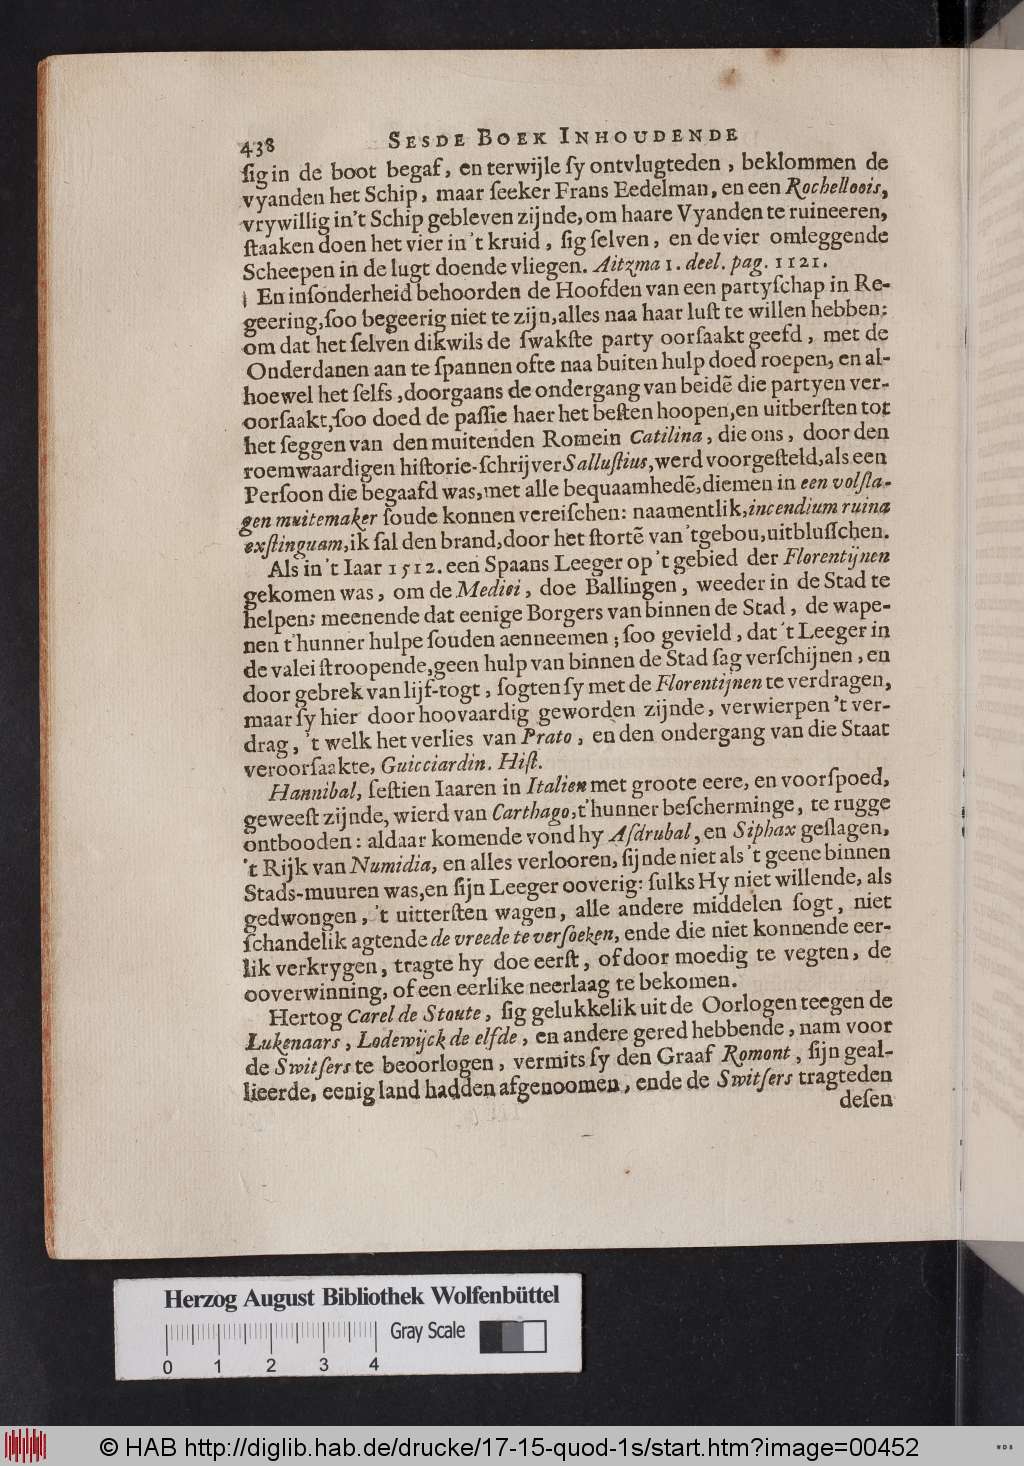 438 SESDE BOEK INHOUDENDE
ſig in de boot begaf, en terwijle ſy ontvlugteden, beklommen de
vyanden het Schip, maar ſeeker Frans Eedelman, en een Rochelloois,
vrywillig in't Schip gebleven zijnde, om haare Vyanden te ruineeren,
ſtaaken doen het vier in 't kruid, ſig ſelven, en de vier omleggende
Scheepen in de lugt doende vliegen. Aitzma 1. deel. pag. 1121.
En inſonderheid behoorden de Hoofden van een partyſchap in Re-
geering, ſoo begeerig niet te zijn, alles naa haar luſt te willen hebben:
om dat het ſelven dikwils de ſwakſte party oorſaakt geefd, met de
Onderdanen aan te ſpannen ofte naa buiten hulp doed roepen, en al-
hoewel het ſelfs, doorgaans de ondergang van beidē die partyen ver-
oorſaakt, ſoo doed de paſſie haer het beſten hoopen, en uitberſten tot
het ſeggen van den muitenden Romein Catilina, die ons, door den
roemwaardigen hiſtorie-ſchrijver Salluſtius, werd voorgeſteld, als een
Perſoon die begaafd was, met alle bequaamhedē, diemen in een volſla-
gen muitemaker ſoude konnen vereiſchen: naamentlik, incendium ruina
exſtinguam, ik ſal den brand, door het ſtortē van 'tgebou, uitbluſſchen.
Als in 't Iaar 1512. een Spaans Leeger op 't gebied der Florentijnen
gekomen was, om de Medici, doe Ballingen, weeder in de Stad te
helpen: meenende dat eenige Borgers van binnen de Stad, de wape-
nen t'hunner hulpe ſouden aenneemen; ſoo gevield, dat 't Leeger in
de valei ſtroopende, geen hulp van binnen de Stad ſag verſchijnen, en
door gebrek van lijf-togt, ſogten ſy met de Florentijnen te verdragen,
maar ſy hier door hoovaardig geworden zijnde, verwierpen 't ver-
drag, 't welk het verlies van Prato, en den ondergang van die Staat
veroorſaakte, Guicciardin. Hiſt.
Hannibal, ſeſtien Iaaren in Italien met groote eere, en voorſpoed,
geweeſt zijnde, wierd van Carthago, t'hunner beſcherminge, te rugge
ontbooden: aldaar komende vond hy Aſdrubal, en Siphax geſlagen,
't Rijk van Numidia, en alles verlooren, ſijnde niet als 't geene binnen
Stads-muuren was, en ſijn Leeger ooverig: ſulks Hy niet willende, als
gedwongen, 't uitterſten wagen, alle andere middelen ſogt, niet
ſchandelik agtende de vreede te verſoeken, ende die niet konnende eer-
lik verkrygen, tragte hy doe eerſt, of door moedig te vegten, de
ooverwinning, of een eerlike neerlaag te bekomen.
Hertog Carel de Stoute, ſig gelukkelik uit de Oorlogen teegen de
Lukenaars, Lodewijck de elfde, en andere gered hebbende, nam voor
de Switſers te beoorlogen, vermits ſy den Graaf Romont, ſijn geal-
lieerde, eenig land hadden afgenoomen, ende de Switſers tragteden
deſen
Herzog August Bibliothek Wolfenbüttel
Gray Scale
0 1 2 3 4
© HAB http://diglib.hab.de/drucke/17-15-quod-1s/start.htm?image=00452